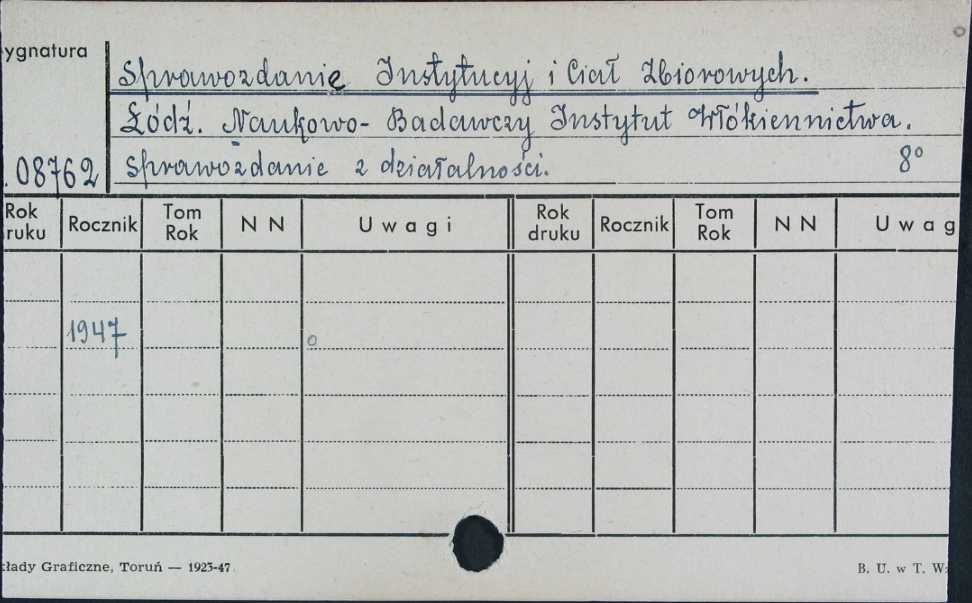 ygnatura
Sprawozdanie Instytucyj i Ciał Zbiorowych.
Łódź. Naukowo-Badawczy Instytut Włókiennictwa.
. 08762 Sprawozdanie z działalności. 8°
Rok ruku Rocznik Tom Rok N N Uwagi Rok druku Rocznik Tom Rok N N Uwag
1947
kłady Graficzne, Toruń — 1923-47 B. U. w T. W: